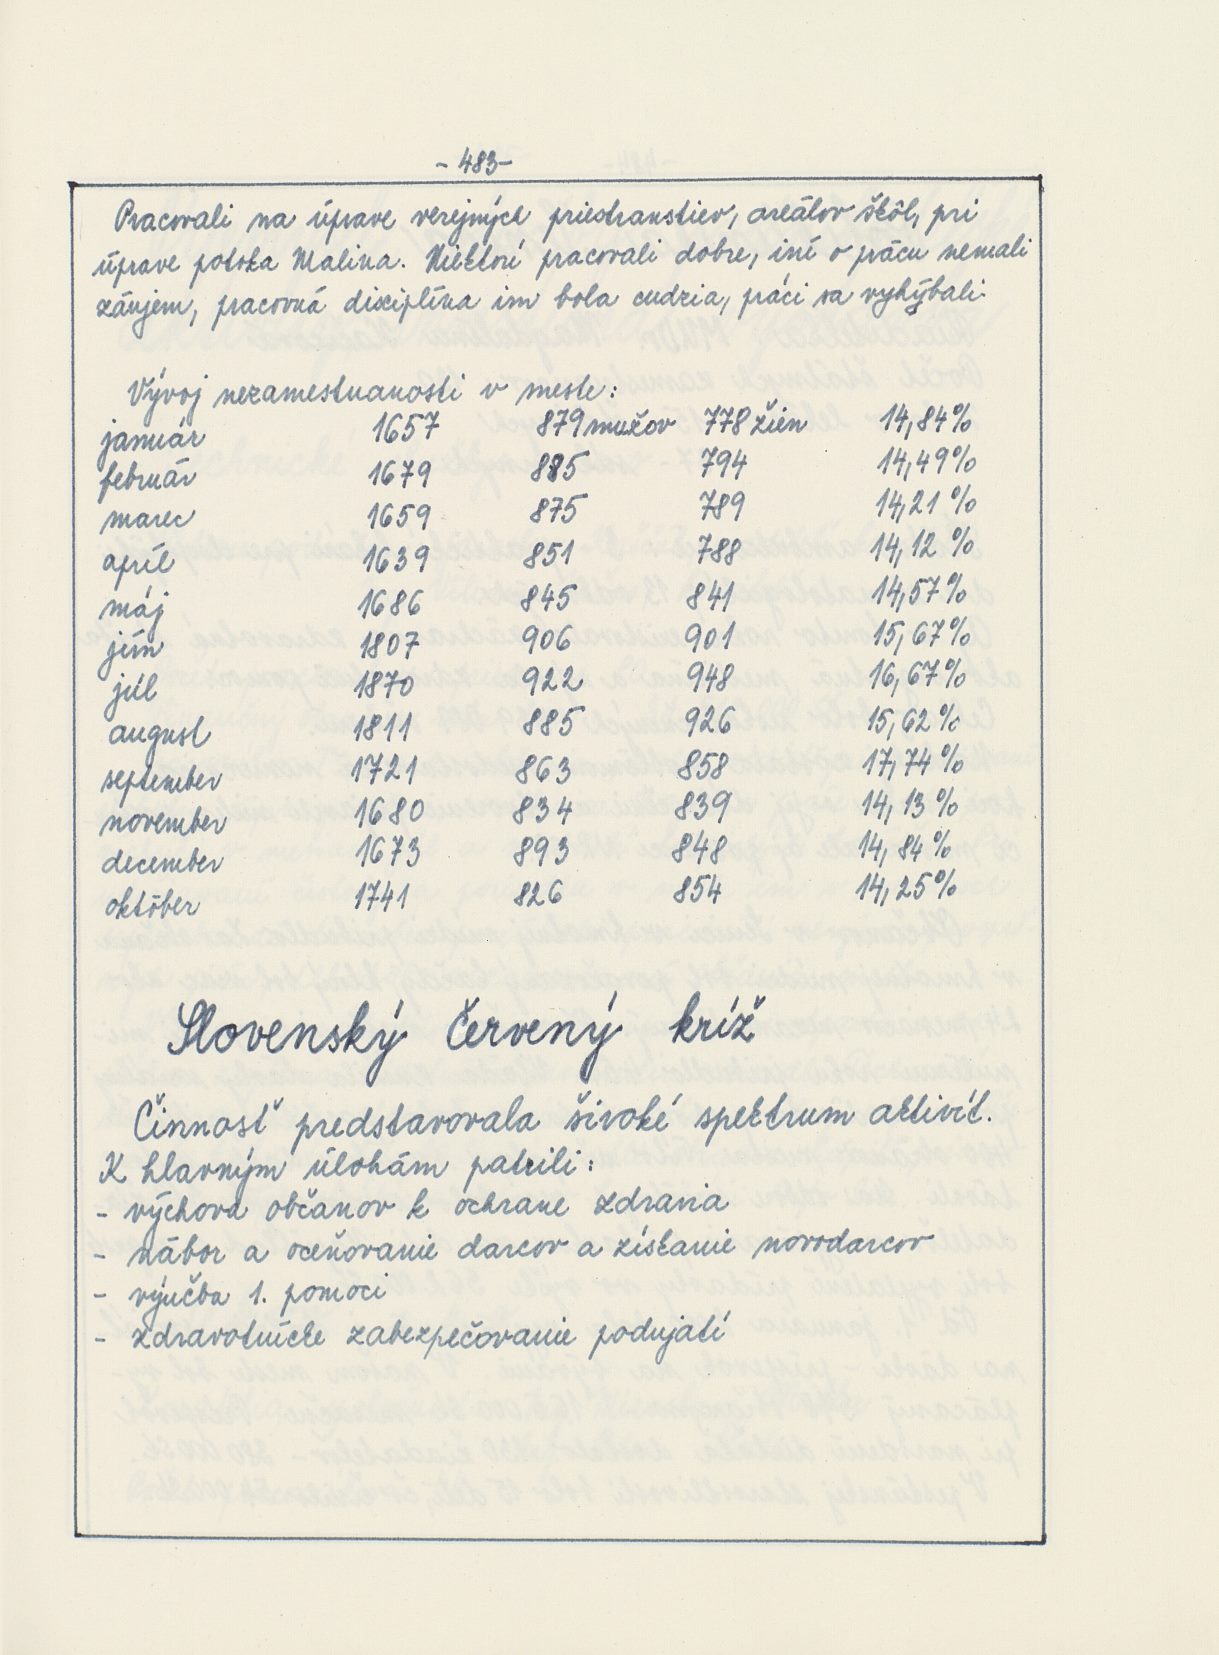 - 483-
Pracovali na úprave verejných priestranstiev, areálov škôl, pri
úprave potoka Malina. Niektorí pracovali dobre, iní o prácu nemali
záujem, pracovná disciplína im bola cudzia, práci sa vyhýbali.
Vývoj nezamestnanosti v meste:
január 1657 879 mužov 778 žien 14,84%
február 1679 885 794 14,49%
marec 1659 875 789 14,21 %
apríl 1639 851 788 14,12 %
máj 1686 845 841 14,57%
jún 1807 906 901 15,67%
júl 1870 922 948 16,67%
august 1811 885 926 15,62%
september 1721 863 858 17,74%
november 1680 834 839 14,13%
december 1673 893 848 14,84%
október 1741 826 854 14,25%
Slovenský Červený kríž
Činnosť predstavovala široké spektrum aktivít.
K hlavným úlohám patrili:
- výchova občanov k ochrane zdravia
- nábor a oceňovanie darcov a získanie novodarcov
- výučba 1. pomoci
- zdravotnícke zabezpečovanie podujatí